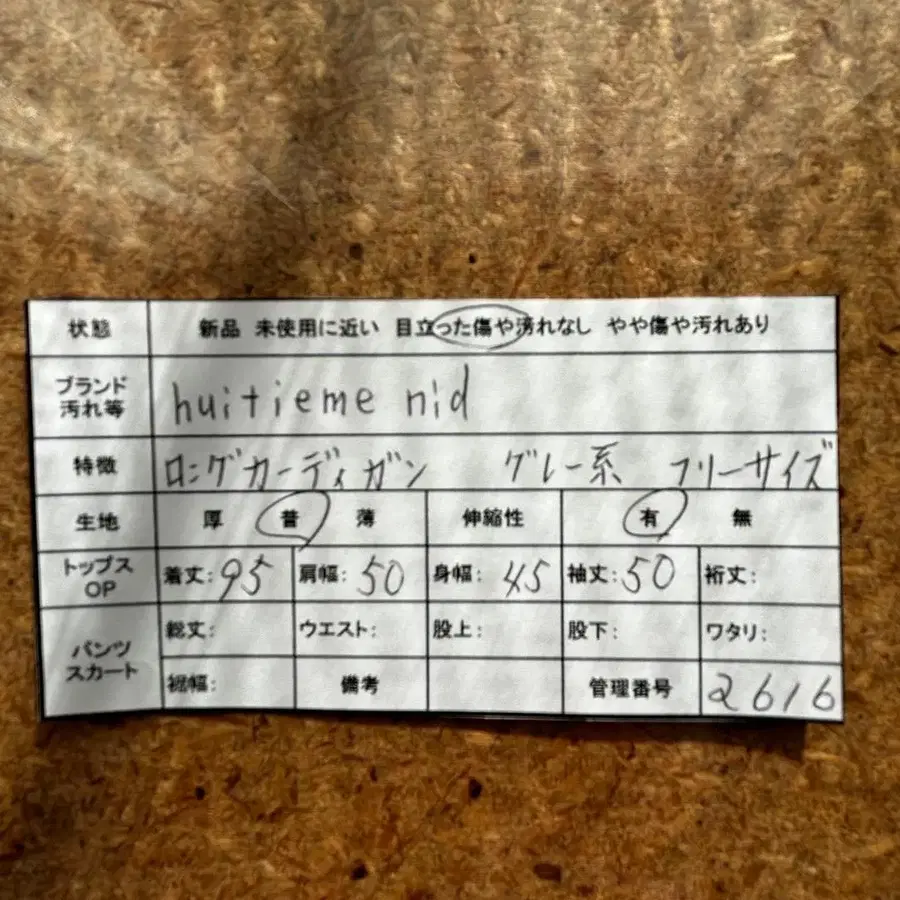 状態 新品 未使用に近い 目立った傷や汚れなし やや傷や汚れあり
ブランド
汚れ等 huitieme nid
特徴 ロングカーディガン グレー系 フリーサイズ
生地 厚 普 薄 伸縮性 有 無
トップス
OP 着丈:95 肩幅:50 身幅:45 袖丈:50 裄丈:
パンツ
スカート 総丈: ウエスト: 股上: 股下: ワタリ:
裾幅: 備考 管理番号 2616